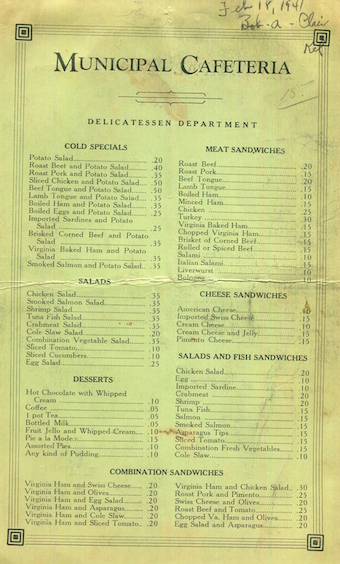 Feb 18, 1941
Bob - a - Clair
15.
MUNICIPAL CAFETERIA
DELICATESSEN DEPARTMENT
COLD SPECIALS
Potato Salad .20
Roast Beef and Potato Salad .40
Roast Pork and Potato Salad .35
Sliced Chicken and Potato Salad .50
Beef Tongue and Potato Salad .50
Lamb Tongue and Potato Salad .35
Boiled Ham and Potato Salad .35
Boiled Eggs and Potato Salad .25
Imported Sardines and Potato
Salad .25
Brisked Corned Beef and Potato
Salad .35
Virginia Baked Ham and Potato
Salad .35
Smoked Salmon and Potato Salad .35
SALADS
Chicken Salad .35
Smoked Salmon Salad .35
Shrimp Salad .35
Tuna Fish Salad .35
Crabmeat Salad .35
Cole Slaw Salad .20
Combination Vegetable Salad .35
Sliced Tomato .10
Sliced Cucumbers .10
Egg Salad .25
DESSERTS
Hot Chocolate with Whipped
Cream .10
Coffee .05
1 pot Tea .05
Bottled Milk .05
Fruit Jello and Whipped Cream .10
Pie a la Mode .15
Assorted Pies .10
Any kind of Pudding .10
MEAT SANDWICHES
Roast Beef .20
Roast Pork .15
Beef Tongue .20
Lamb Tongue .15
Boiled Ham .10
Minced Ham .15
Chicken .25
Turkey .30
Virginia Baked Ham .15
Chopped Virginia Ham .15
Brisket of Corned Beef .15
Rolled or Spiced Beef .15
Salami .10
Italian Salami .15
Liverwurst .10
Bologna .10
CHEESE SANDWICHES
American Cheese .10
Imported Swiss Cheese .15
Cream Cheese .10
Cream Cheese and Jelly .15
Pimento Cheese .15
SALADS AND FISH SANDWICHES
Chicken Salad .20
Egg .10
Imported Sardine .10
Crabmeat .20
Shrimp .20
Tuna Fish .15
Salmon .15
Smoked Salmon .15
Asparagus Tips .20
Sliced Tomato .15
Combination Fresh Vegetables .15
Cole Slaw .10
COMBINATION SANDWICHES
Virginia Ham and Swiss Cheese .20
Virginia Ham and Olives .20
Virginia Ham and Egg Salad .20
Virginia Ham and Asparagus .20
Virginia Ham and Cole Slaw .20
Virginia Ham and Sliced Tomato .20
Virginia Ham and Chicken Salad .30
Roast Pork and Pimento .25
Swiss Cheese and Olives .20
Roast Beef and Tomato .25
Chopped Va. Ham and Olives .20
Egg Salad and Asparagus .20